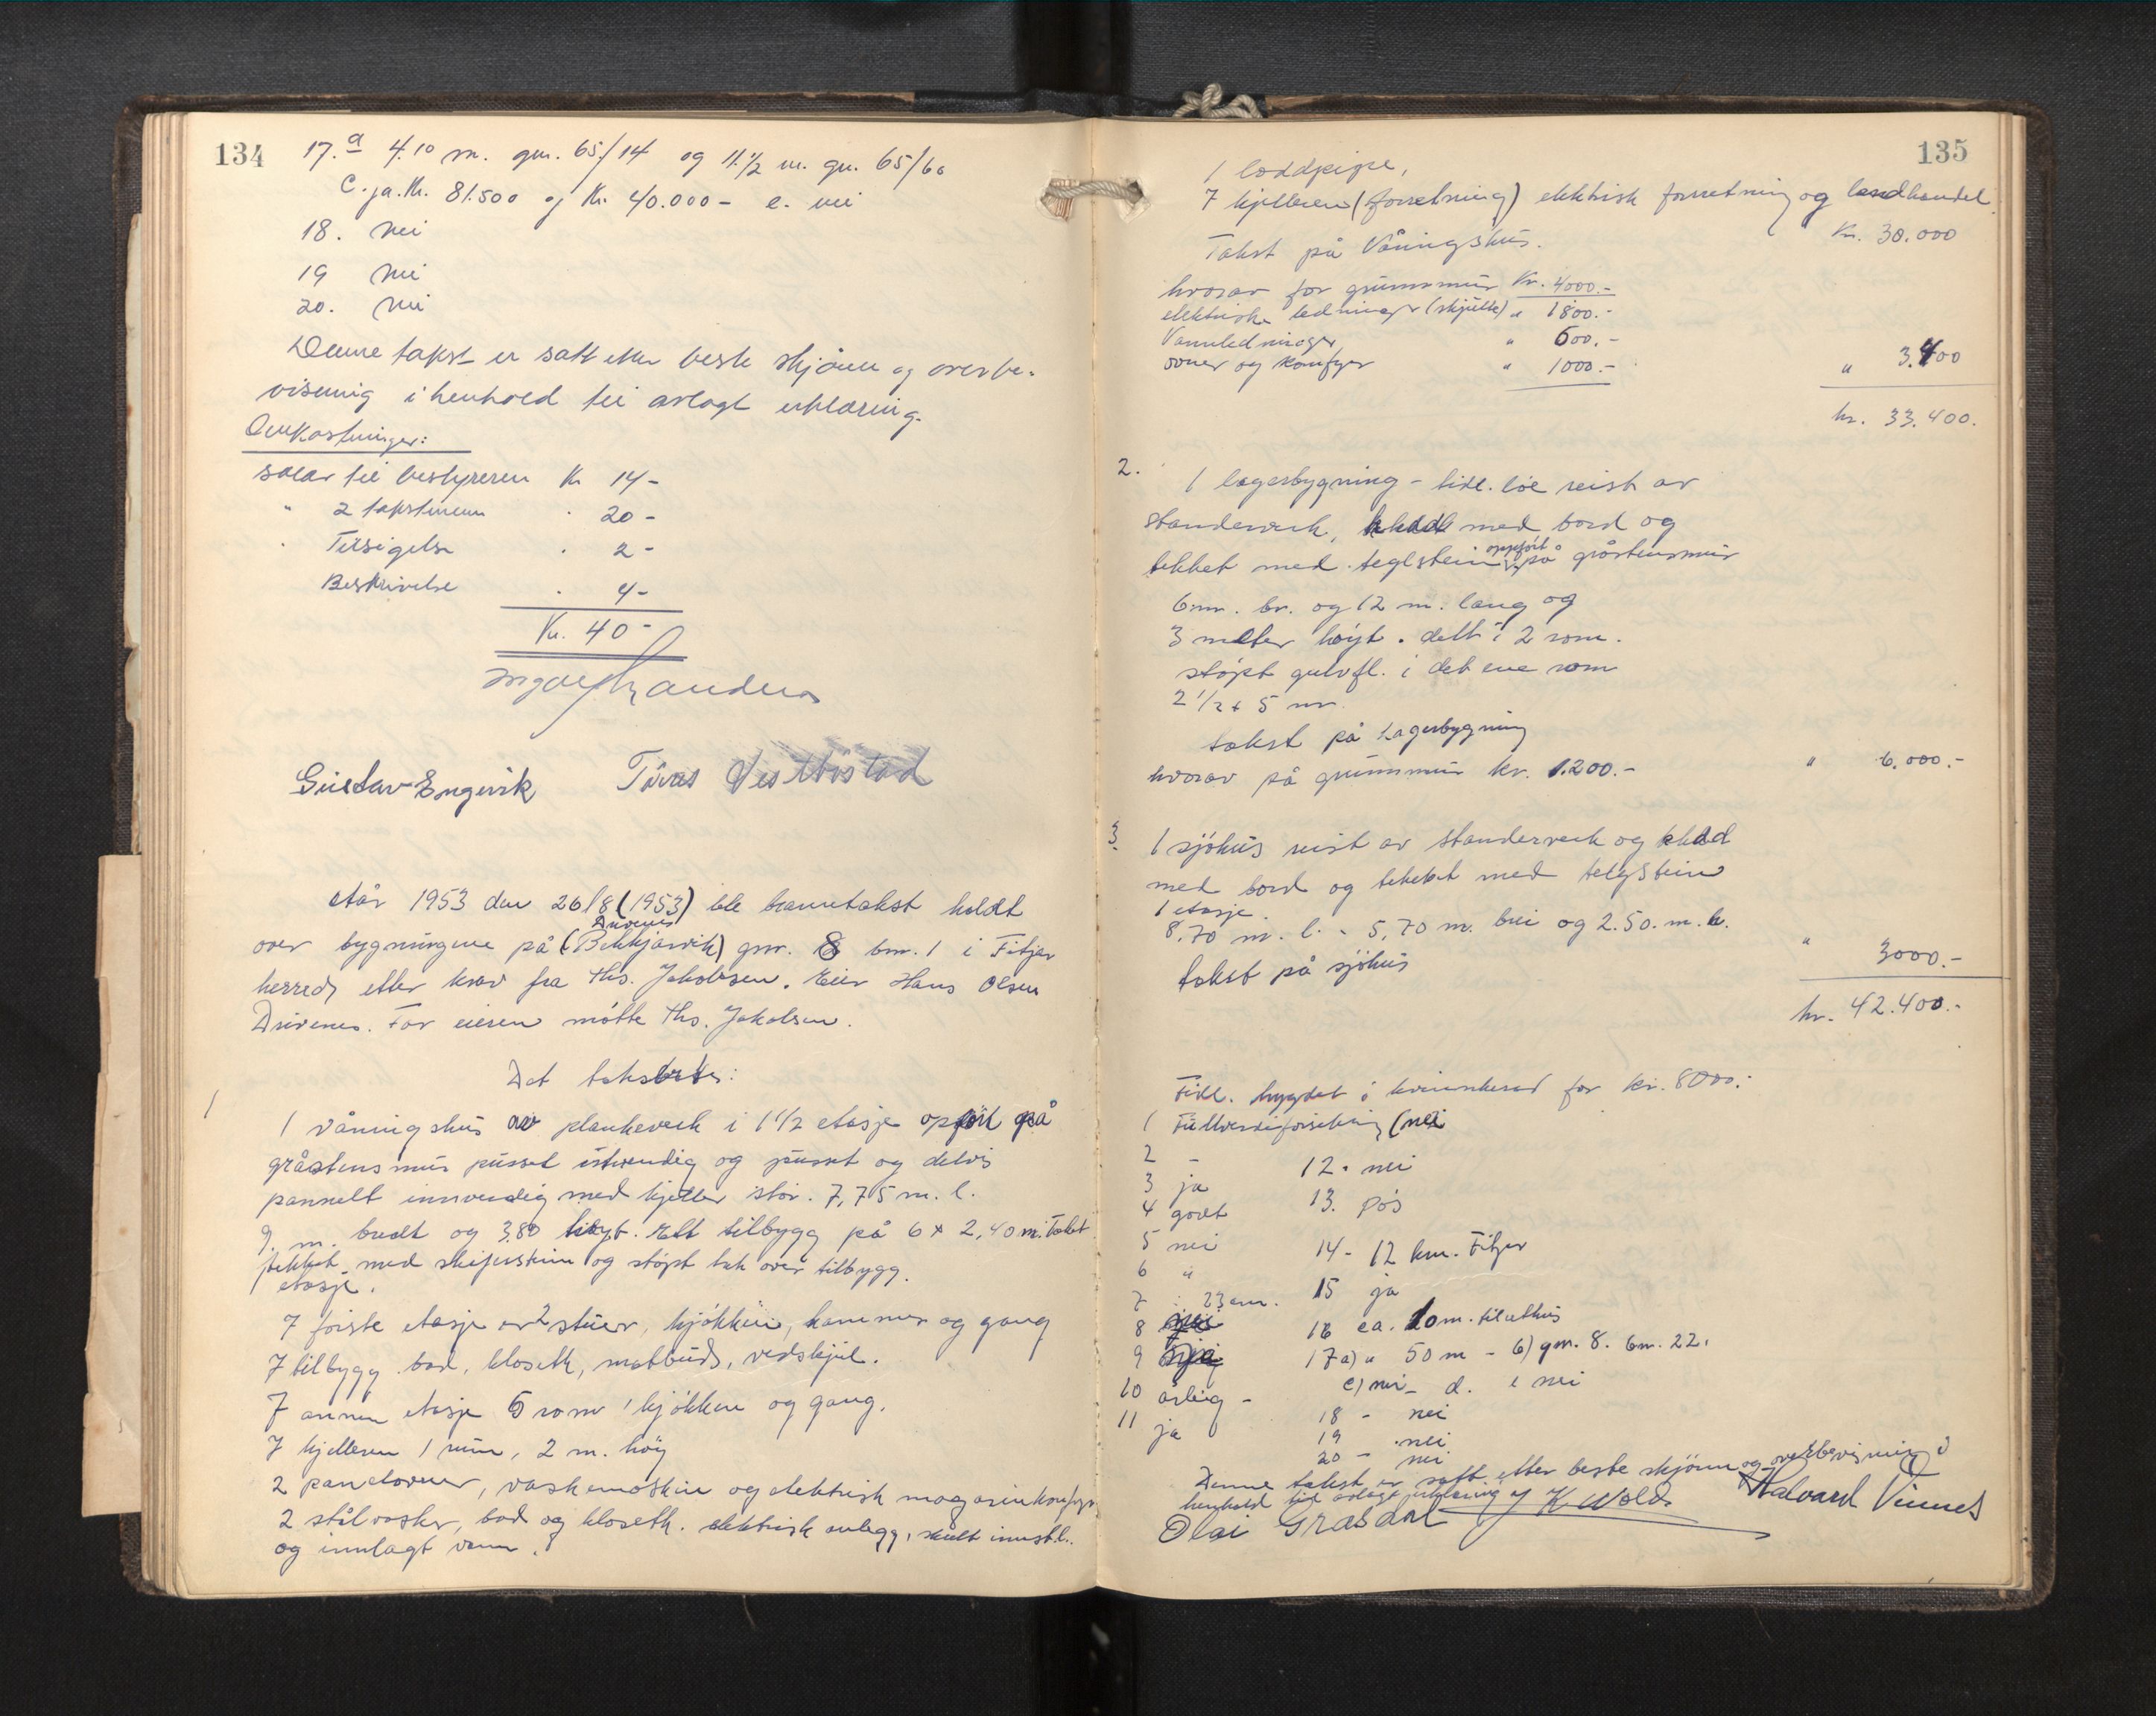 134
17. a 4.10 m. gnr. 65/14 og 11.1/2 m. gnr. 65/60
C. ja. Kr. 81.500 og Kr. 40.000 - e. nei
18. nei
19 nei
20. nei
Denne takst er satt etter beste skjønn og overbe-
visning i henhold til avlagt erklæring.
Omkostninger:
Salær til bestyreren Kr 14 -
" 2 takstmenn " 20 -
" Tilsigelse " 2 -
Beskrivelse " 4 -
Kr. 40 -
Gustav Engevik
År 1953 den 26/8 (1953) ble branntakst holdt
Drivenes
over bygningene på (Bekkjarvik) gnr. 8 bnr. 1 i Fitjar
herred etter krav fra Ths. Jakobsen. Eier Hans Olsen
Drivenes. For eieren møtte Ths. Jakobsen.
Det taksertes:
1
1 våningshus av plankeverk i 1 1/2 etasje oppført på
gråstensmur pusset utvendig og pusset og delvis
pannelt innvendig med kjeller stør. 7,75 m. l.
9 m. bredt og 3.80 høyt. Ett tilbygg på 6 x 2,40 m. Taket
tekket med skiferstein og støpt tak over tilbygg.
1 etasje.
I første etasje er 2 stuer, kjøkken, kammer og gang
I tilbygg bad, klosett, matbud, vedskjul.
I annen etasje 5 rom 1 kjøkken og gang.
I kjelleren 1 rum, 2 m. høy
2 panelovner, vaskemaskin og elektrisk magasinkomfyr,
2 stålvasker, bad og klosett. elektrisk anlegg, skult innstl.
og innlagt vann.
135
1 loddpipe,
I kjelleren (forretning) elektrisk forretning og landhandel.
Takst på Våningshus. Kr. 30.000
hvorav for grunnmur Kr. 4000.-
elektriske ledninger (skjulte) " 1800.-
Vannledninger " 600.-
ovner og komfyr " 1000.- " 3.400
kr. 33.400.
2.
1 lagerbygning - tidl. løe reist av
standerverk, kledd med bord og
tekket med teglstein oppført på gråstensmur
6 m. br. og 12 m. lang og
3 meter høyt. delt i 2 rom.
støpt gulvfl. i det ene rom
2 1/2 x 5 m.
takst på Lagerbygning
hvorav på grunnmur kr. 1.200.- " 6.000.-
3.
1 sjøhus reist av standerverk og kledd
med bord og tekket med teglstein
1 etasje.
8,70 m. l. - 5,70 m. brei og 2.50. m. h.
takst på sjøhus " 3000.-
kr. 42.400.-
Tidl. bygdet i for kr. 8000.-
1 Fullverdiforsikring (nei
2 -
3 ja
4 godt
5 nei
6 "
7 : 23 cm.
8
9
10 årlig -
11 ja
12. nei
13. Pøs
14 - 12 km. Fitjar
15 ja
16 ca. 10 m. til uthus
17 a) " 50 m - b) gnr. 8. bnr. 22.
c) nei - d. e nei
18 - nei
19 nei
20 - nei
Denne takst er satt etter beste skjønn og overbevisning i
henhold til avlagt erklæring
Halvard Vinnes
Olai Græsdal K. Wold